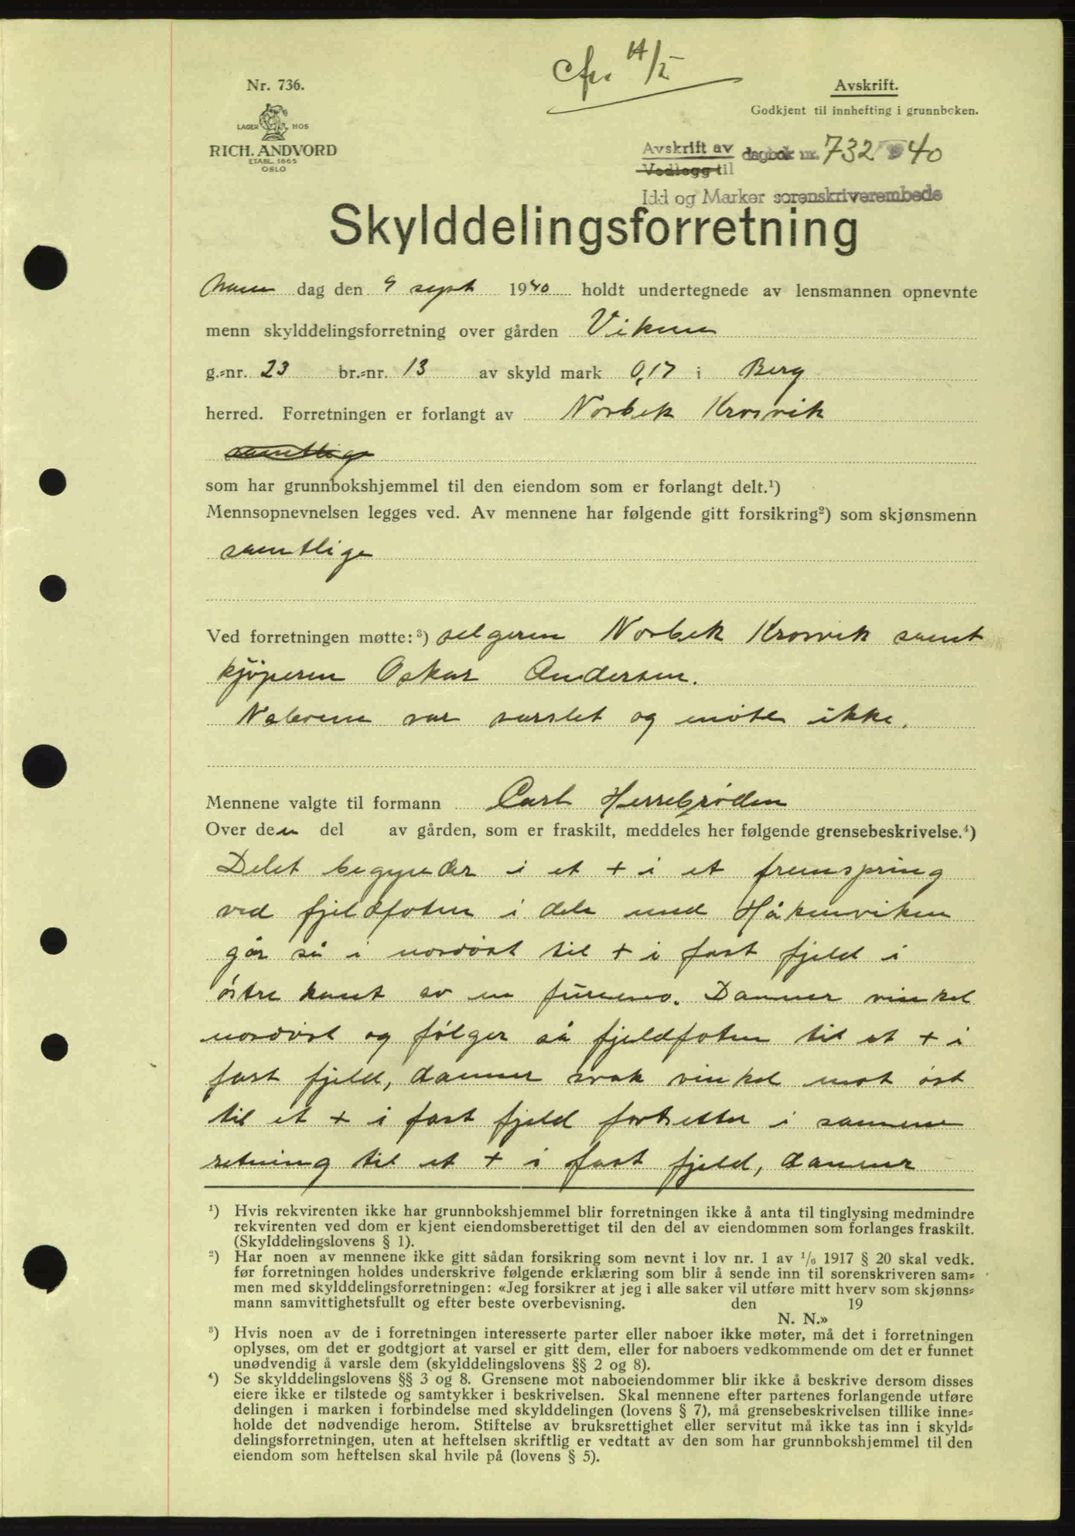 Nr. 736.
LAGER HOS
RICH. ANDVORD
ETABL. 1865
OSLO
Cfr. 14/5
Avskrift.
Godkjent til innhefting i grunnboken.
Avskrift av dagbok nr. 732 1940
Vedlegg til
Idd og Marker sorenskriverembede
Skylddelingsforretning
Man dag den 9 sept 1940 holdt undertegnede av lensmannen opnevnte
menn skylddelingsforretning over gården Viken
g.-nr. 23 br.-nr. 13 av skyld mark 0,17 i Berg
herred. Forretningen er forlangt av Norbek Krosvik
samtlige
som har grunnbokshjemmel til den eiendom som er forlangt delt.¹)
Mennsopnevnelsen legges ved. Av mennene har følgende gitt forsikring²) som skjønsmenn
samtlige
Ved forretningen møtte:³) selgeren Norbek Krosvik samt
kjøperen Oskar Andersen.
Naboene var varslet og møtte ikke.
Mennene valgte til formann Carl Herrebrøden
Over den del av gården, som er fraskilt, meddeles her følgende grensebeskrivelse.⁴)
Delet begynder i et + i et fremspring
ved fjeldfoten i dele med Håkenviken
går så i nordøst til + i fast fjeld i
østre kant av en furumo. Danner vinkel
nordøst og følger så fjeldfoten til et + i
fast fjeld, danner svak vinkel mot øst
til et + i fast fjeld fortsetter i samme
retning til et + i fast fjeld, danner
¹) Hvis rekvirenten ikke har grunnbokshjemmel blir forretningen ikke å anta til tinglysing medmindre
rekvirenten ved dom er kjent eiendomsberettiget til den del av eiendommen som forlanges fraskilt.
(Skylddelingslovens § 1).
²) Har noen av mennene ikke gitt sådan forsikring som nevnt i lov nr. 1 av 1/6 1917 § 20 skal vedk.
før forretningen holdes underskrive følgende erklæring som blir å sende inn til sorenskriveren sam-
men med skylddelingsforretningen: «Jeg forsikrer at jeg i alle saker vil utføre mitt hverv som skjønns-
mann samvittighetsfullt og efter beste overbevisning. den 19
N. N.»
³) Hvis noen av de i forretningen interesserte parter eller naboer ikke møter, må det i forretningen
oplyses, om det er godtgjort at varsel er gitt dem, eller for naboers vedkommende om det er funnet
unødvendig å varsle dem (skylddelingslovens §§ 2 og 8).
⁴) Se skylddelingslovens §§ 3 og 8. Grensene mot naboeiendommer blir ikke å beskrive dersom disses
eiere ikke er tilstede og samtykker i beskrivelsen. Skal mennene efter partenes forlangende utføre
delingen i marken i forbindelse med skylddelingen (lovens § 7), må grensebeskrivelsen tillike inne-
holde det nødvendige herom. Stiftelse av bruksrettighet eller servitut må ikke tas inn i skyld-
delingsforretningen, uten at heftelsen skriftlig er vedtatt av den som har grunnbokshjemmel til den
eiendom som heftelsen skal hvile på (lovens § 5).